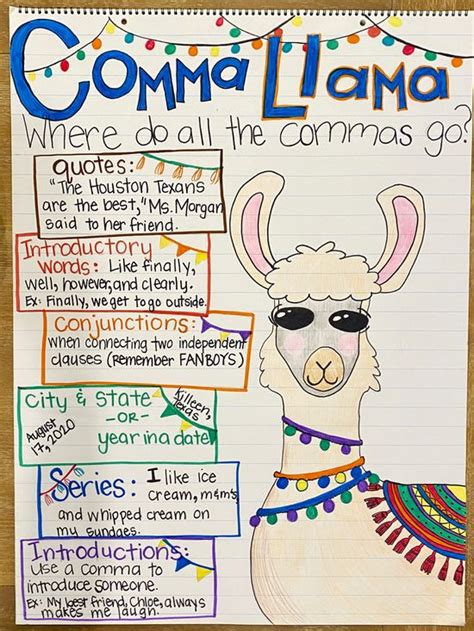 Comma Llama
Where do all the commas go?
quotes:
"The Houston Texans
are the best," Ms. Morgan
said to her friend.
Introductory
words: Like finally,
well, however, and clearly.
Ex: Finally, we get to go outside.
Conjunctions:
when connecting two independent
clauses (Remember FANBOYS)
City & State
-OR-
year in a date
Killeen,
Texas
August
17, 2020
Series: I like ice
cream, m&m's
and whipped cream on
my sundaes.
Introductions:
Use a comma to
introduce someone.
Ex: My best friend, Chloe, always
makes me laugh.